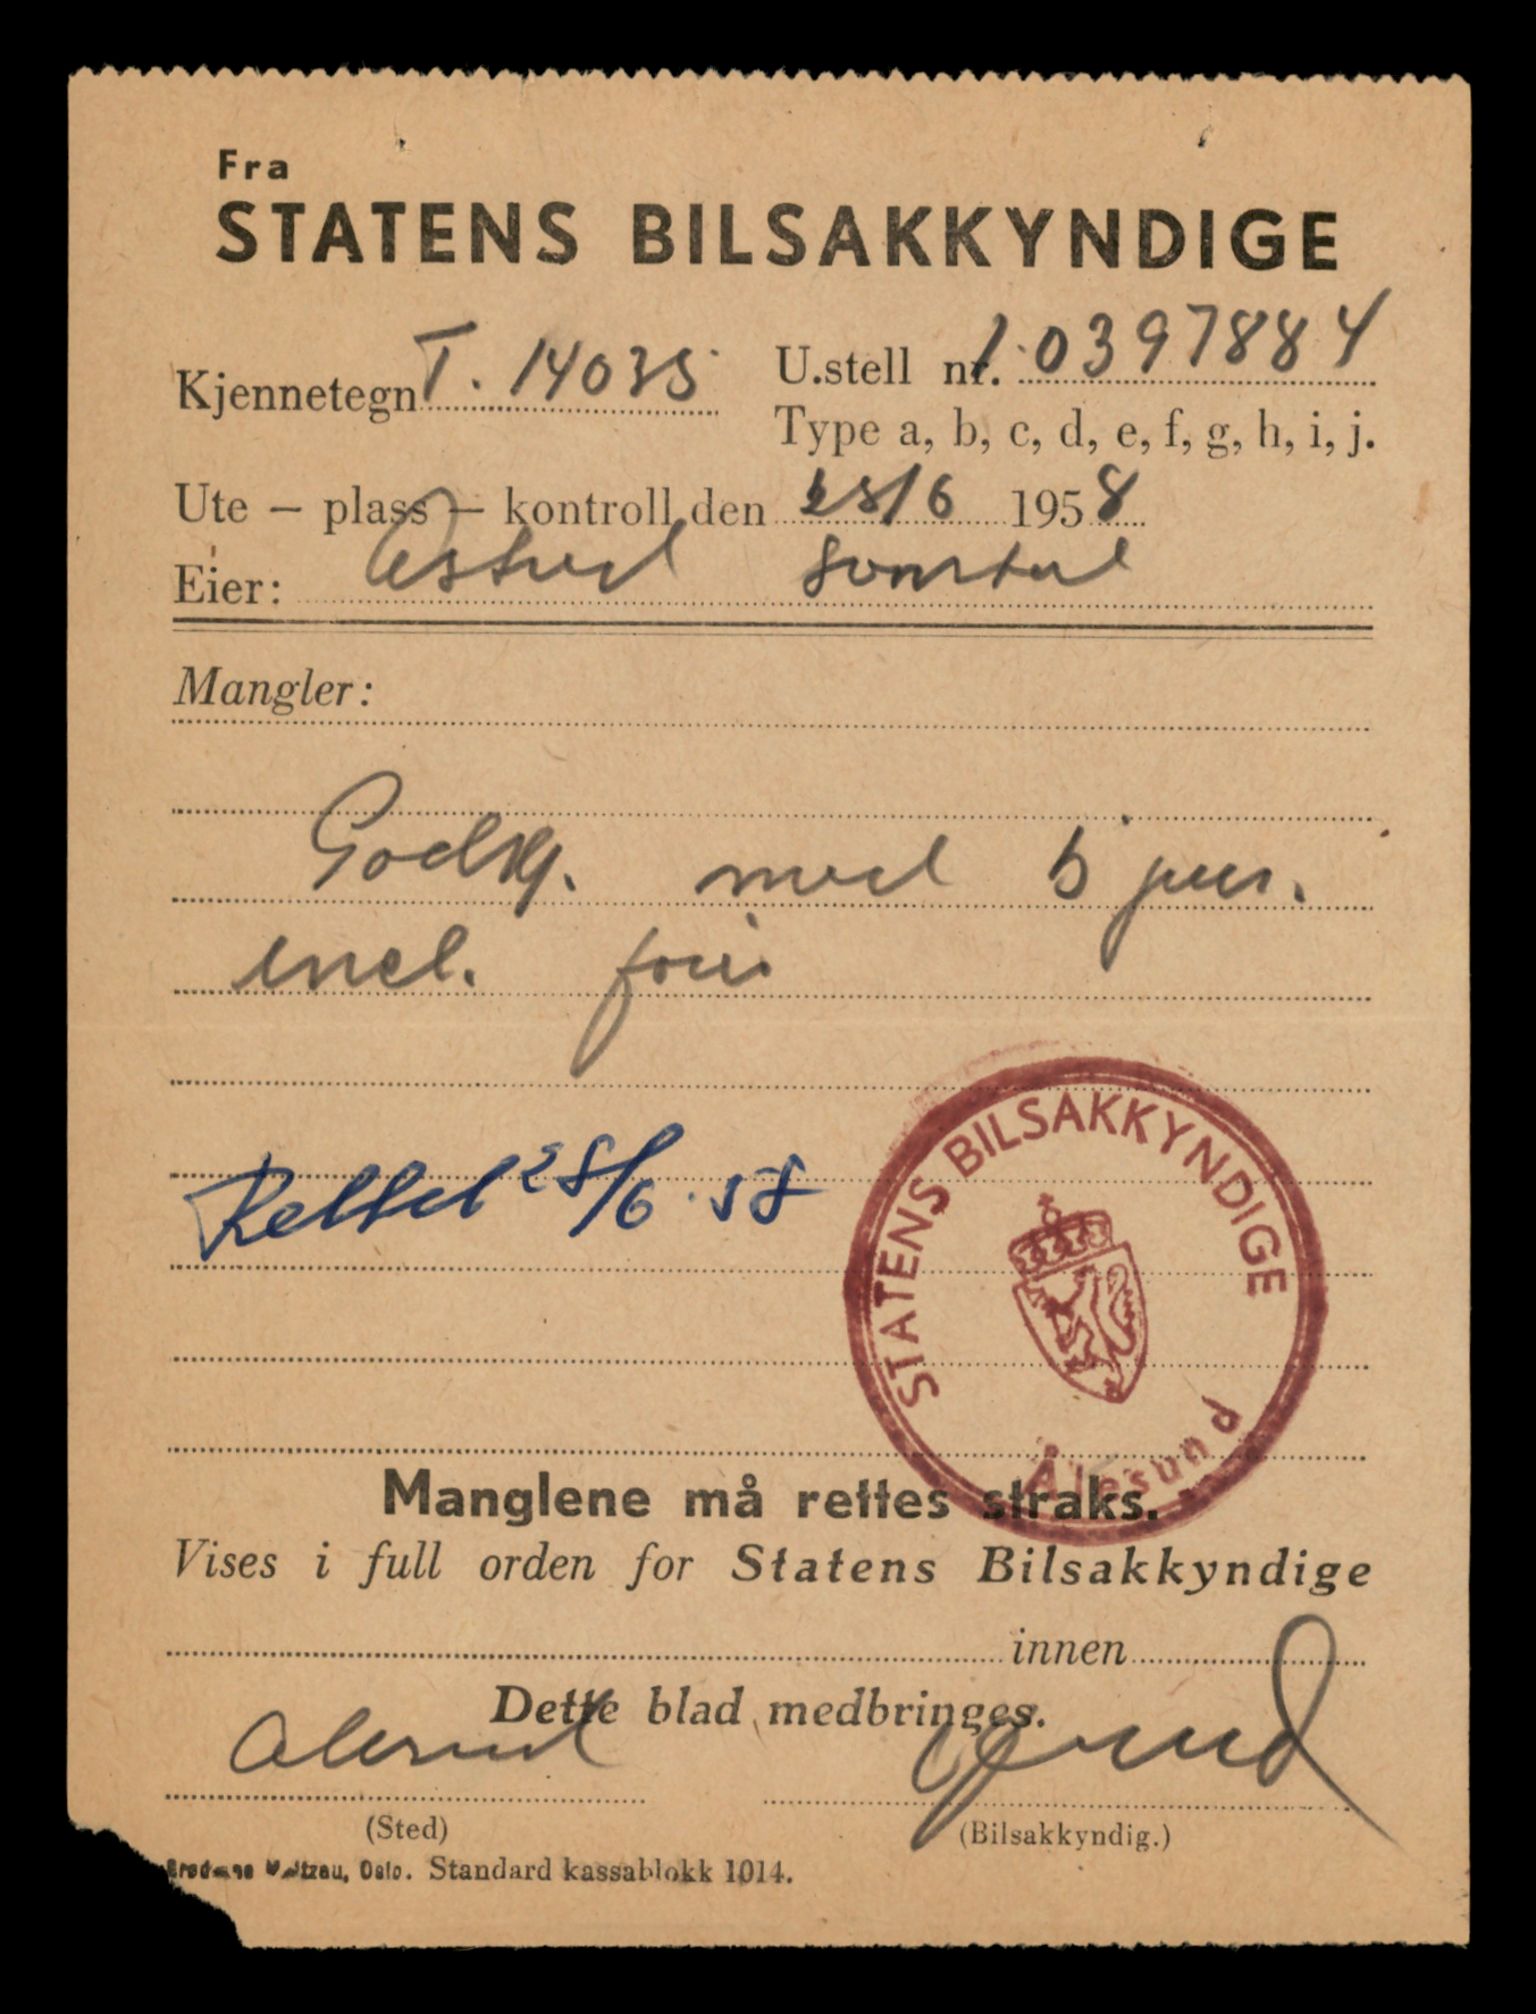 Fra
STATENS BILSAKKYNDIGE
Kjennetegn T. 14035 U.stell nr. 10397884
Type a, b, c, d, e, f, g, h, i, j.
Ute – plass – kontroll den 28/6 1958
Eier:
Mangler:
Godkj. med 5 pers.
incl. fører
Rettet 28/6.58
STATENS BILSAKKYNDIGE
Ålesund
Manglene må rettes straks.
Vises i full orden for Statens Bilsakkyndige
innen
Dette blad medbringes.
Ålesund
(Sted) (Bilsakkyndig.)
Oslo. Standard kassablokk 1014.